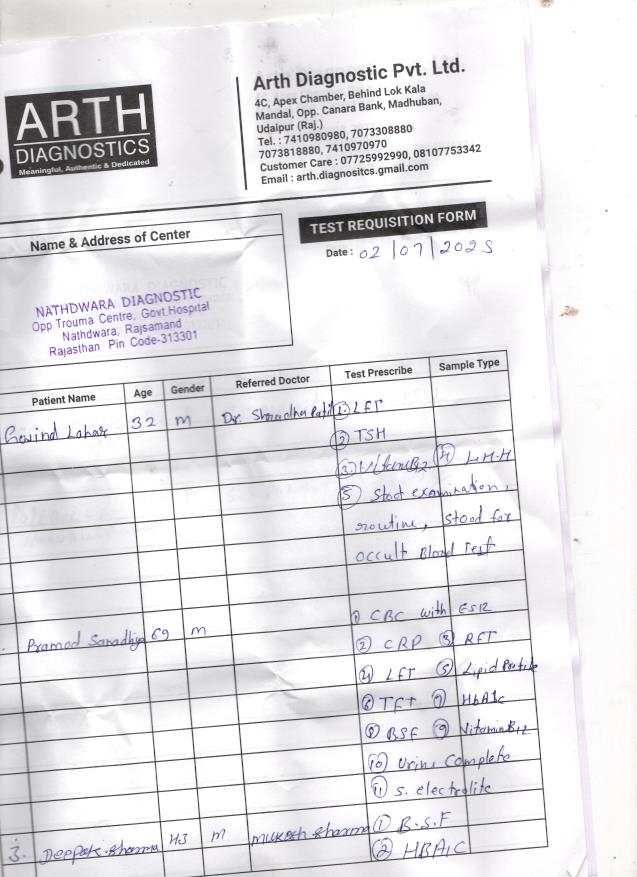 ARTH
DIAGNOSTICS
Meaningful, Authentic & Dedicated
Arth Diagnostic Pvt. Ltd.
4C, Apex Chamber, Behind Lok Kala
Mandal, Opp. Canara Bank, Madhuban,
Udaipur (Raj.)
Tel. : 7410980980, 7073308880
7073818880, 7410970970
Customer Care : 07725992990, 08107753342
Email : arth.diagnositcs.gmail.com
TEST REQUISITION FORM
Date : 02/07/2025
Name & Address of Center
NATHDWARA DIAGNOSTIC
Opp Trouma Centre, Govt.Hospital
Nathdwara, Rajsamand
Rajasthan Pin Code-313301
Patient Name Age Gender Referred Doctor Test Prescribe Sample Type
Govind Lahar 32 m Dr. Patil ① LFT
② TSH
③ ④
⑤ examination,
routine, Stool for
occult Blood Test
Pramod Sanadhya 69 m ① CBC with ESR
② CRP ③ RFT
④ LFT ⑤ Lipid Profile
⑥ TFT ⑦ HbA1c
⑧ BSF ⑨ VitaminB12
⑩ Urine Complete
⑪ S. electrolite
3. Deepak Sharma 43 m Mukesh Sharma ① B.S.F
② HBA1C